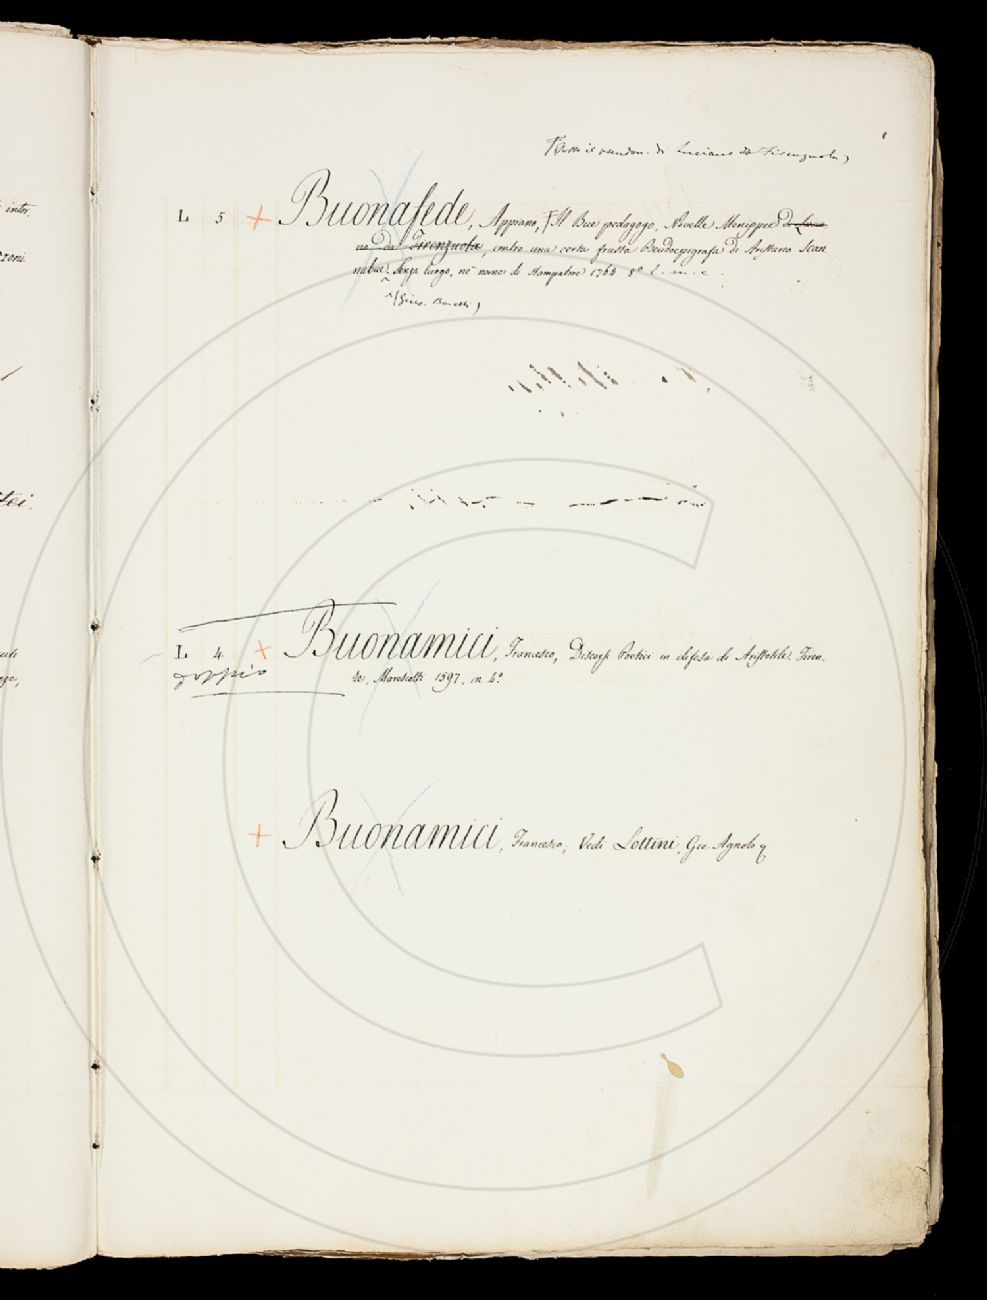 inter.
zzoni
tei.
(sotto il pseudon. di Luciano da Firenzuola)
L 5 + Buonafede, Appiano, Il Bue pedagogo, Novelle Menippee di Lucia-
no da Firenzuola, contro una certa frusta Pseudoepigrafa di Aristarco Scan
nabue. Senza luogo, nè nome di stampatore 1764 8º
(Gius. Baretti)
L 4 + Buonamici, Francesco, Discorsi Poetici in difesa di Aristotile. Firen-
doppio ze, Marescotti 1597, in 4º
+ Buonamici, Francesco, Vedi Lottini, Gio. Agnolo